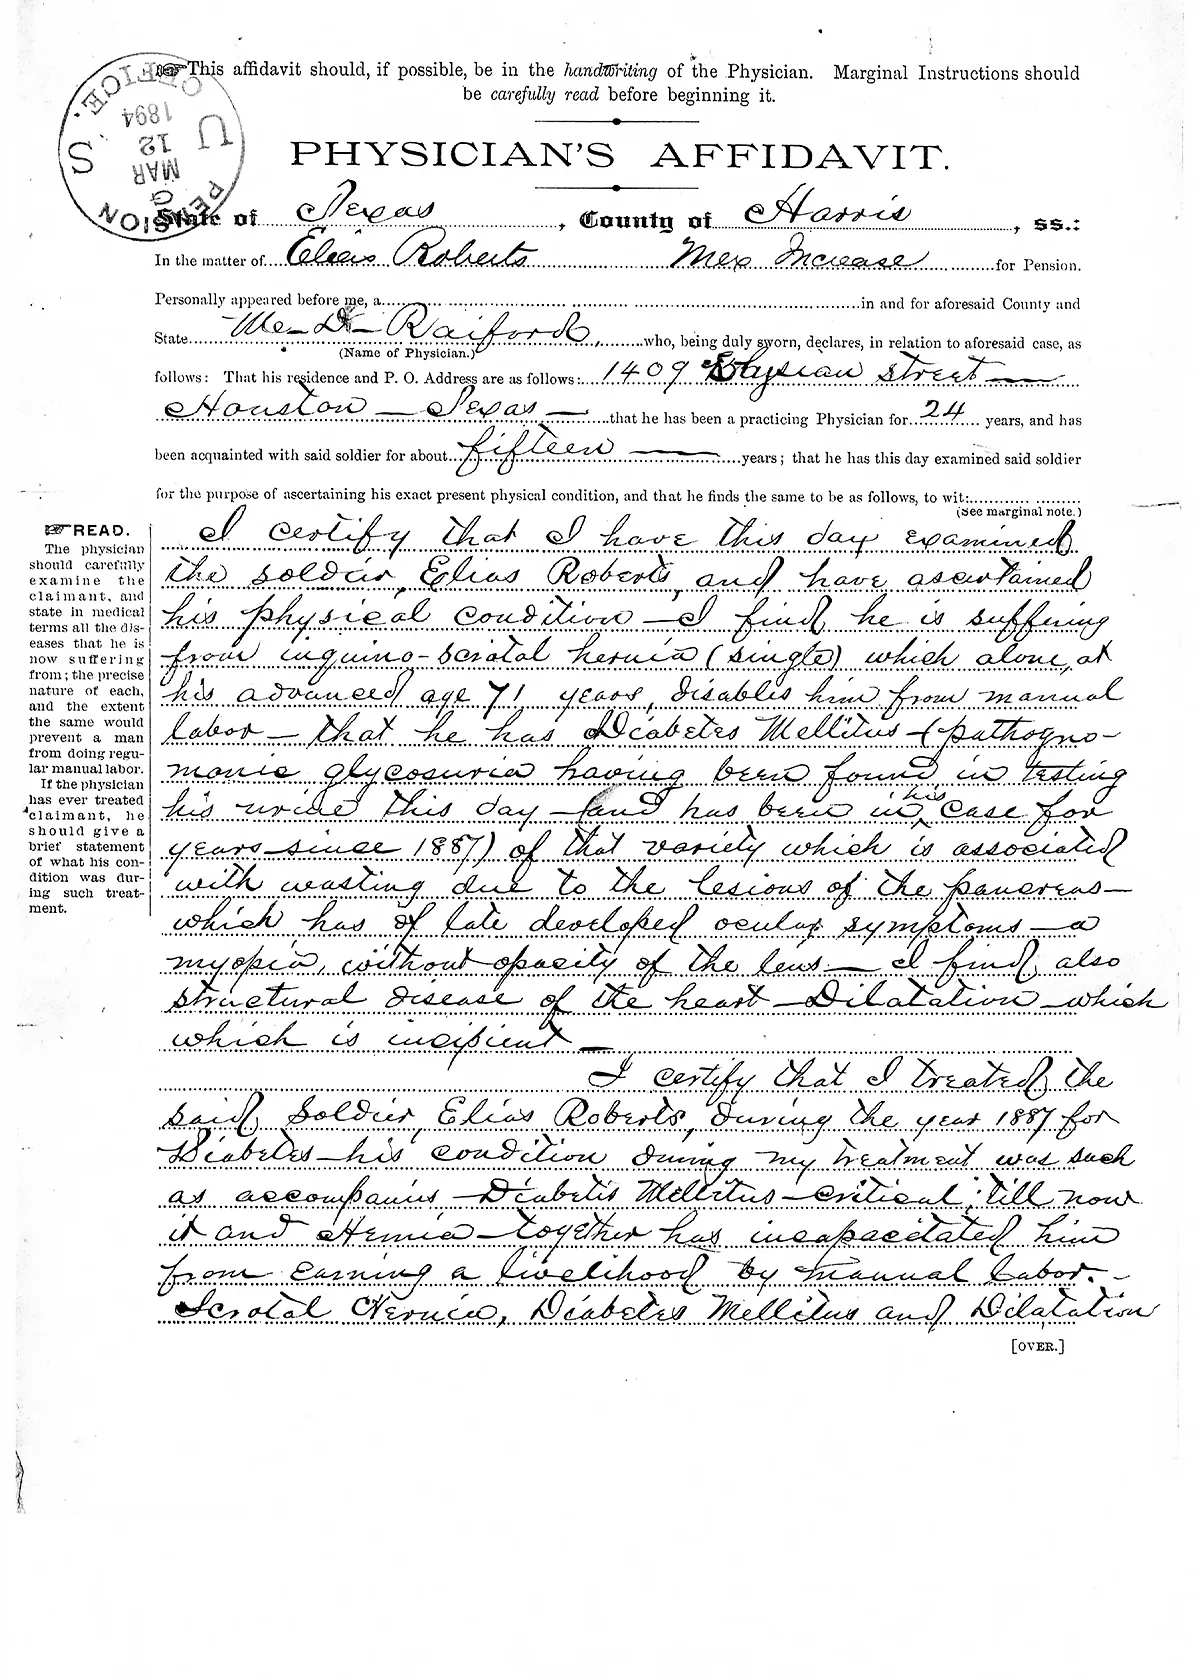 ☞This affidavit should, if possible, be in the handwriting of the Physician. Marginal Instructions should
be carefully read before beginning it.
U. S. PENSION OFFICE.
MAR
12
1894
PHYSICIAN'S AFFIDAVIT.
State of Texas, County of Harris, ss.:
In the matter of Elias Roberts Mex Increase for Pension.
Personally appeared before me, a in and for aforesaid County and
State D Raiford, who, being duly sworn, declares, in relation to aforesaid case, as
(Name of Physician.)
follows: That his residence and P. O. Address are as follows: 1409 Elysian Street —
Houston — Texas — that he has been a practicing Physician for 24 years, and has
been acquainted with said soldier for about fifteen — years; that he has this day examined said soldier
for the purpose of ascertaining his exact present physical condition, and that he finds the same to be as follows, to wit:
(See marginal note.)
☞READ.
The physician
should carefully
examine the
claimant, and
state in medical
terms all the dis-
eases that he is
now suffering
from; the precise
nature of each,
and the extent
the same would
prevent a man
from doing regu-
lar manual labor.
If the physician
has ever treated
claimant, he
should give a
brief statement
of what his con-
dition was dur-
ing such treat-
ment.
I certify that I have this day examined
the soldier, Elias Roberts, and have ascertained
his physical condition — I find he is suffering
from inguino-scrotal hernia (single) which alone, at
his advanced age 71 years, disables him from manual
labor — that he has Diabetes Mellitus — (pathogno-
monic glycosuria having been found in testing
his urine this day — and has been in his case for
years—since 1887) of that variety which is associated
with wasting due to the lesions of the pancreas—
which has of late developed ocular symptoms — a
myopia, without opacity of the lens — I find, also
structural disease of the heart — Dilatation — which
which is incipient —
I certify that I treated the
said Soldier, Elias Roberts, during the year 1887 for
Diabetes — his condition during my treatment was such
as accompanies — Diabetis Mellitus — critical; till now
it and Hernia — together has incapacitated him
from earning a livelihood by manual labor. —
Scrotal Hernia, Diabetes Mellitus and Dilatation
[OVER.]